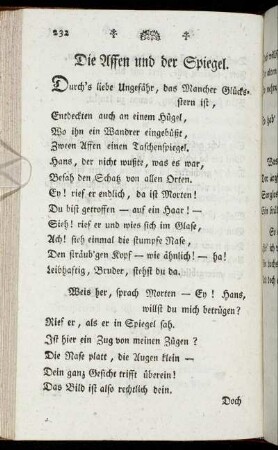 232
Die Affen und der Spiegel.
Durch's liebe Ungefähr, das Mancher Glücks-
stern ist,
Entdeckten auch an einem Hügel,
Wo ihn ein Wandrer eingebüßt,
Zween Affen einen Taschenspiegel.
Hans, der nicht wußte, was es war,
Besah den Schatz von allen Orten.
Ey! rief er endlich, da ist Morten!
Du bist getroffen — auf ein Haar! —
Sieh! rief er und wies sich im Glase,
Ach! sieh einmal die stumpfe Nase,
Den sträub'gen Kopf — wie ähnlich! — ha!
Leibhaftig, Bruder, stehst du da.
Weis her, sprach Morten — Ey! Hans,
willst du mich betrügen?
Rief er, als er in Spiegel sah.
Ist hier ein Zug von meinen Zügen?
Die Nase platt, die Augen klein —
Dein ganz Gesicht trifft überein!
Das Bild ist also rechtlich dein.
Doch